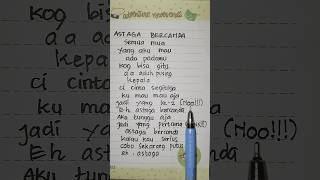 ASTAGA BERCANDA
Semua mua
yang aku mau
ada padamu
kog bisa gitu
aa aduh pusing
kepala
ci cinta segitiga
ku mau mau aja
jadi yang ke-2 (Hoo!!!)
Eh astaga bercanda
Aku tunggu aja
jadi yang pertama
astaga bercanda
kalau kau serius
coba sekarang putus
Eh astaga